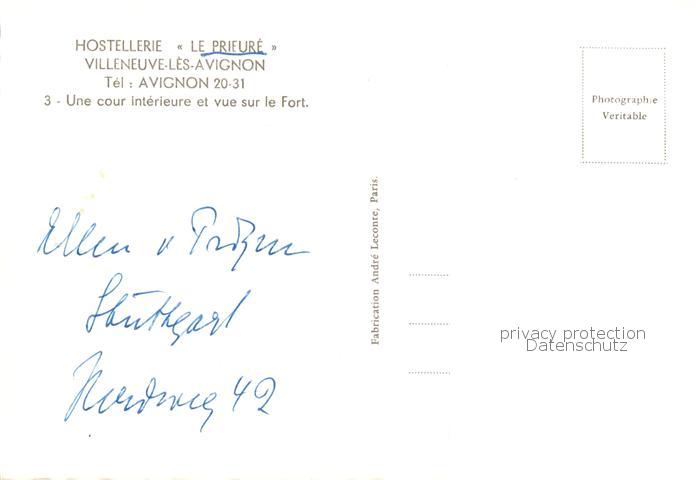 HOSTELLERIE « LE PRIEURÉ »
VILLENEUVE-LÈS-AVIGNON
Tél : AVIGNON 20-31
3 - Une cour intérieure et vue sur le Fort.
Photographie
Veritable
Fabrication André Leconte, Paris.
Ellen v
Stuttgart
Nordweg 42
privacy protection
Datenschutz